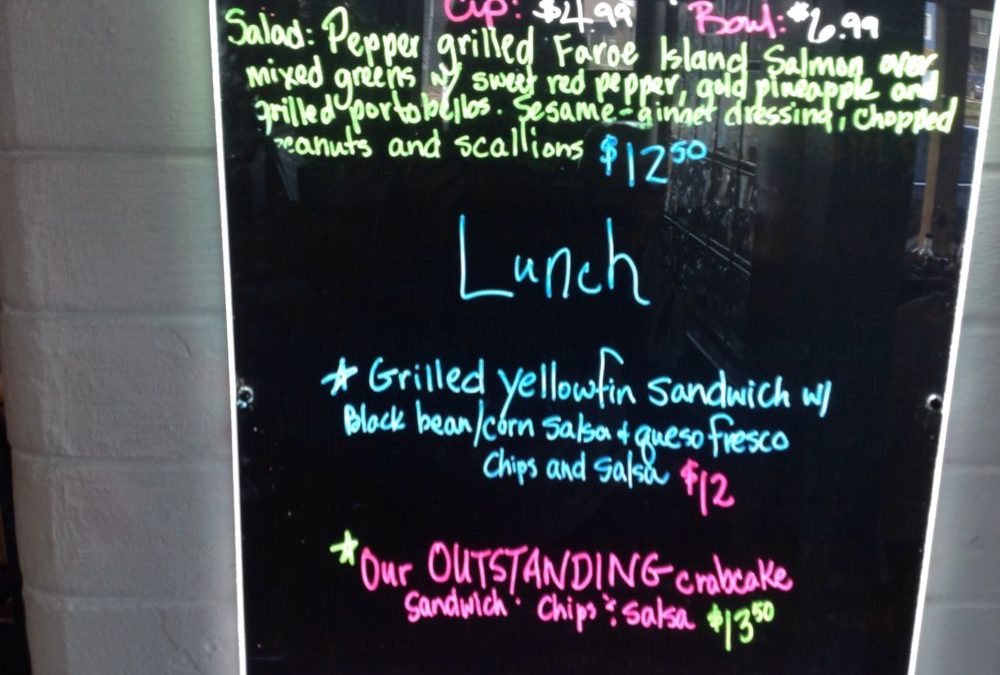 Cup: $4.99 Bowl: $6.99
Salad: Pepper grilled Faroe Island Salmon over
mixed greens w/ sweet red pepper, gold pineapple and
grilled portobellos. Sesame-ginger dressing, Chopped
peanuts and scallions $12.50
Lunch
Grilled yellowfin Sandwich w/
Black bean/corn Salsa & queso fresco
Chips and Salsa $12
Our OUTSTANDING crabcake
Sandwich. Chips & Salsa $13.50